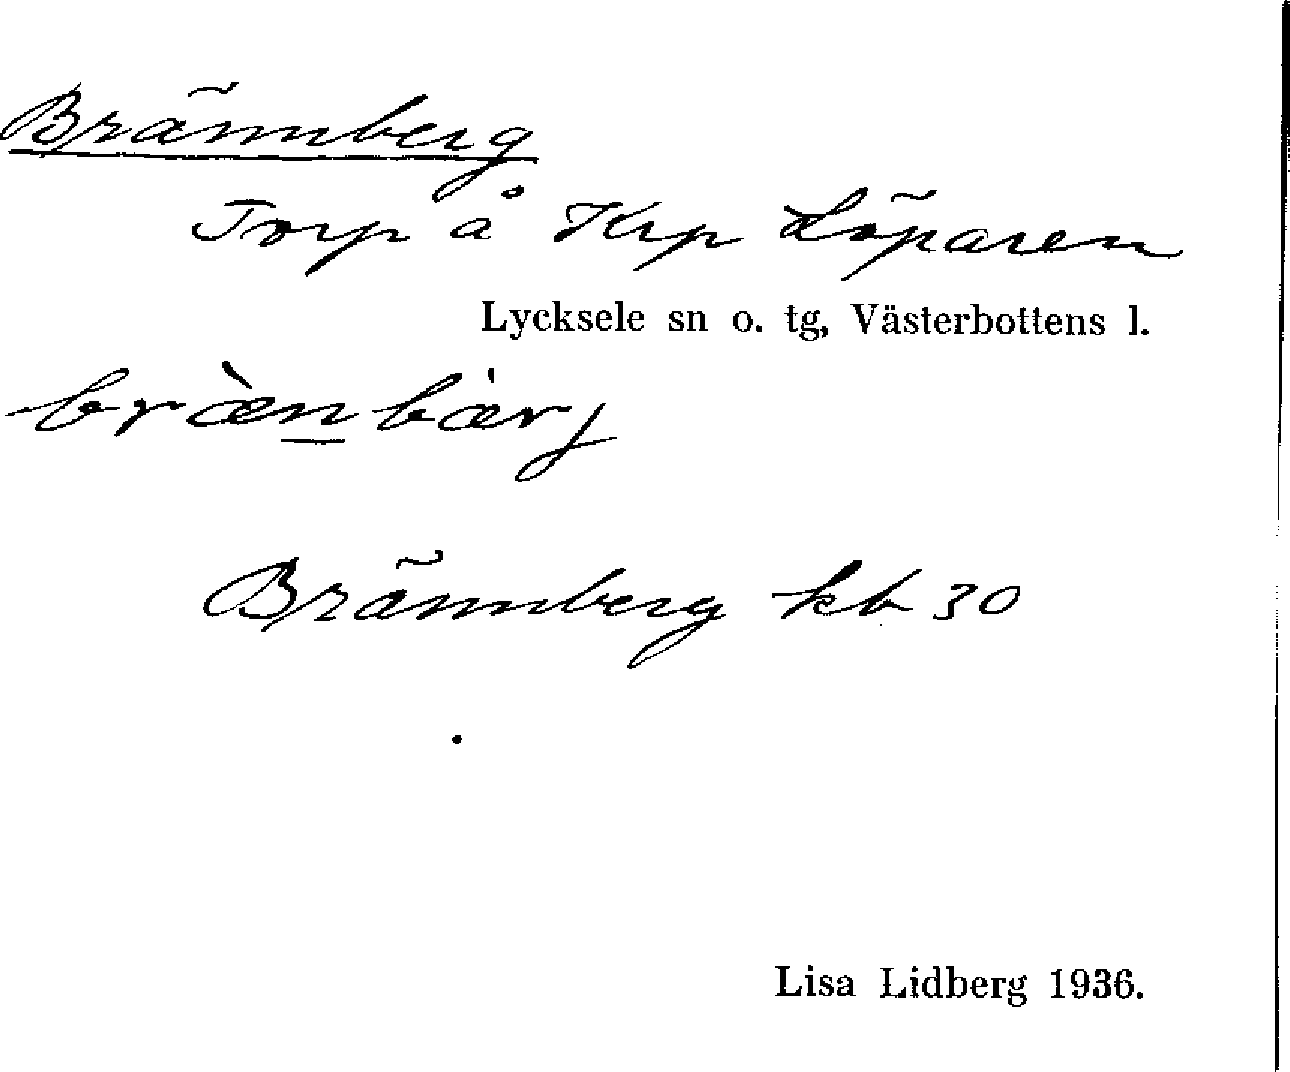 Brännberg
Torp å Krp Löparen
Lycksele sn o. tg, Västerbottens l.
bræ̀nbærj
Brännberg kb 30
Lisa Lidberg 1936.